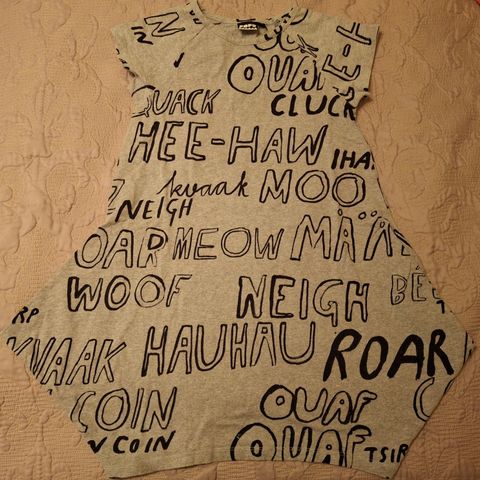 OUAF
QUACK CLUCK
HEE-HAW IHA
kvaak MOO
NEIGH
OAR MEOW MÄÄ
WOOF NEIGH BÉ
RP
KVAAK HAUHAU ROAR
COIN OUAF
COIN OUAF TSIR